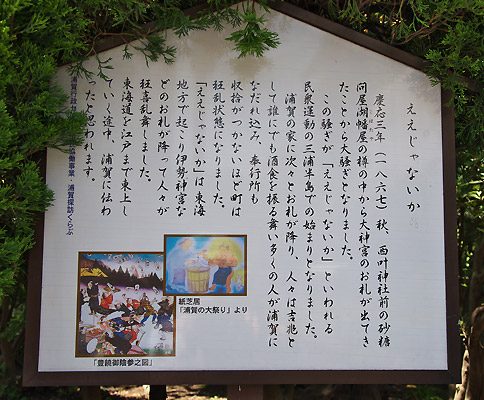 ええじゃないか
慶応三年(一八六七)秋、西叶神社前の砂糖
問屋湖幡屋の樽の中から大神宮のお札が出てき
たことから大騒ぎとなりました。
この騒ぎが「ええじゃないか」といわれる
民衆運動の三浦半島での始まりとなりました。
浦賀の家に次々とお札が降り、人々は吉兆と
して誰にでも酒食を振る舞い多くの人が浦賀に
なだれ込み、奉行所も
収拾がつかないほど町は
狂乱状態となりました。
「ええじゃないか」は東海
地方で起こり伊勢神宮な
どのお札が降って人々が
狂喜乱舞しました。
東海道を江戸まで東上し
ていく途中、浦賀に伝わ
ったと思われます。
浦賀行政センター市民協働事業・浦賀探訪くらぶ
紙芝居
「浦賀の大祭り」より
「豊饒御陰参之図」